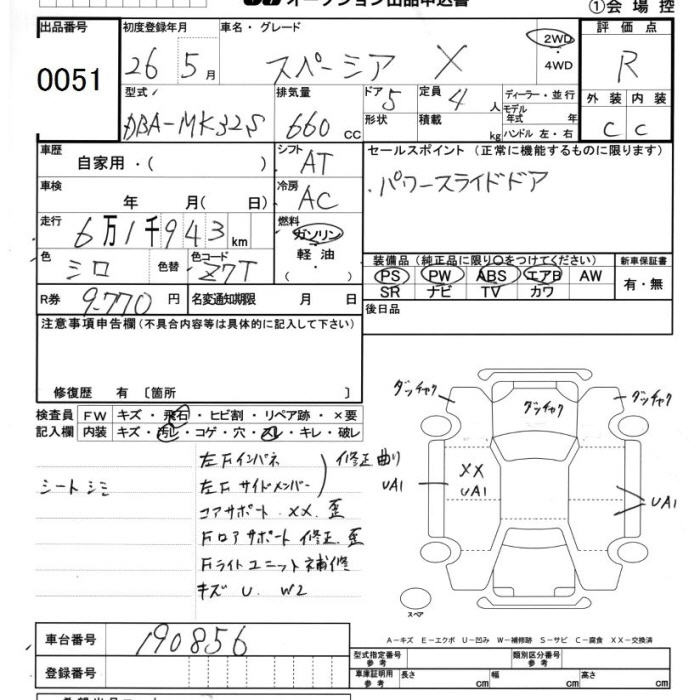 オークション出品申込書 ①会場控
出品番号 初度登録年月 車名・グレード 評価点
0051 26 5月 スペーシア X 2WD・4WD R
型式 排気量 ドア 5 定員 4人 ディーラー・並行
DBA-MK32S 660cc 形状 積載 kg モデル年式 年 ハンドル 左・右 外装 内装
C C
車歴 自家用・( ) シフト AT セールスポイント (正常に機能するものに限ります)
車検 年 月( 日) 冷房 AC ・パワースライドドア
走行 6万1千943km 燃料 ガソリン 軽油 ( ・ )
色 シロ 色替 色コード Z7T 装備品 (純正品に限り○をつけてください) 新車保証書
PS PW ABS エアB AW 有・無
SR ナビ TV カワ
R券 9.770円 名変通知期限 月 日 後日品
注意事項申告欄 (不具合内容等は具体的に記入して下さい)
修復歴 有 〔箇所 〕
検査員 FW キズ・飛石・ヒビ割・リペア跡・×要
記入欄 内装 キズ・汚レ・コゲ・穴・スレ・キレ・破レ
左Fインパネ
シートシミ 左Fサイドメンバー 修正曲り
コアサポート XX. 歪
Fロアサポート 修正. 歪
Fライトユニット補修
キズ U. W2
ダッチャク ダッチャク ダッチャク
UA1 XX UA1 UA1
スペア
A-キズ E-エクボ U-凹み W-補修跡 S-サビ C-腐食 XX-交換済
車台番号 190856
登録番号
型式指定番号 参考 類別区分番号 参考
車庫証明用 参考 長さ cm 幅 cm 高さ cm